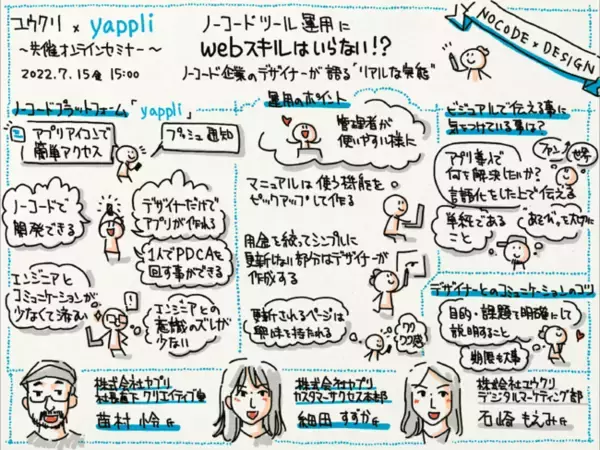 ユウクリ × yappli
〜共催オンラインセミナー〜
2022.7.15金 15:00
ノーコードツール運用に
webスキルはいらない!?
ノーコード企業のデザイナーが語る"リアルな実態"
NOCODE × DESIGN
ノーコードプラットフォーム「yappli」
アプリアイコンで
簡単アクセス
プッシュ通知
ノーコードで
開発できる
デザイナーだけで
アプリが作れる
1人でPDCAを
回す事ができる
エンジニアと
コミュニケーションが
少なくて済む
エンジニアとの
意識のズレが
少ない
運用のポイント
管理者が
使いやすい様に
マニュアルは使う機能を
ピックアップして作る
用途を絞ってシンプルに
更新しない部分はデザイナーが
作成する
更新されるページは
興味を持たれる
ワク
ワク感
ビジュアルで伝える事に
気をつけている事は?
ファン
世界
アプリ導入で
何を解決したいか?
言語化をした上で伝える
単純である
こと
デザイナーとのコミュニケーションのコツ
目的・課題を明確にして
説明すること
期限も大事
株式会社ヤプリ
社長直下 クリエイティブ室
苗村 小令氏
株式会社ヤプリ
カスタマーサクセス本部
細田 すずか氏
株式会社ユウクリ
デジタルマーケティング部
石崎 もえみ氏